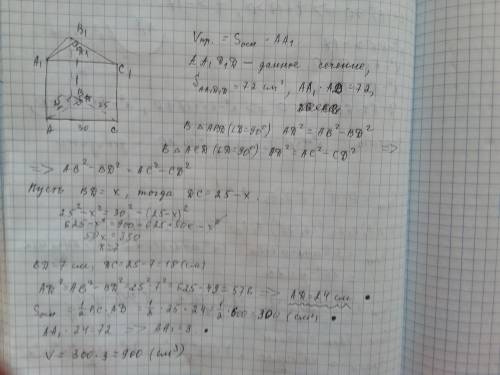 B₁
D₁
A₁
C₁
B
25
25
A 30 C
Vпр. = Sосн · AA₁
AA₁D₁D — данное сечение,
S AA₁D₁D = 72 см², AA₁ · AD = 72,
В △ ABD (∠D = 90°) AD² = AB² − BD²
В △ ACD (∠D = 90°) AD² = AC² − CD² =>
=> AB² − BD² = AC² − CD²
Пусть BD = x, тогда DC = 25 − x.
25² − x² = 30² − (25 − x)²
625 − x² = 900 − 625 + 50x − x²
50x = 350
x = 7
BD = 7 см, DC = 25 − 7 = 18 (см)
AD² = AB² − BD² = 25² − 7² = 625 − 49 = 576 => AD = 24 см
Sосн = ½ BC · AD = ½ · 25 · 24 = ½ · 600 = 300 (см²)
AA₁ · 24 = 72 => AA₁ = 3
V = 300 · 3 = 900 (см³)